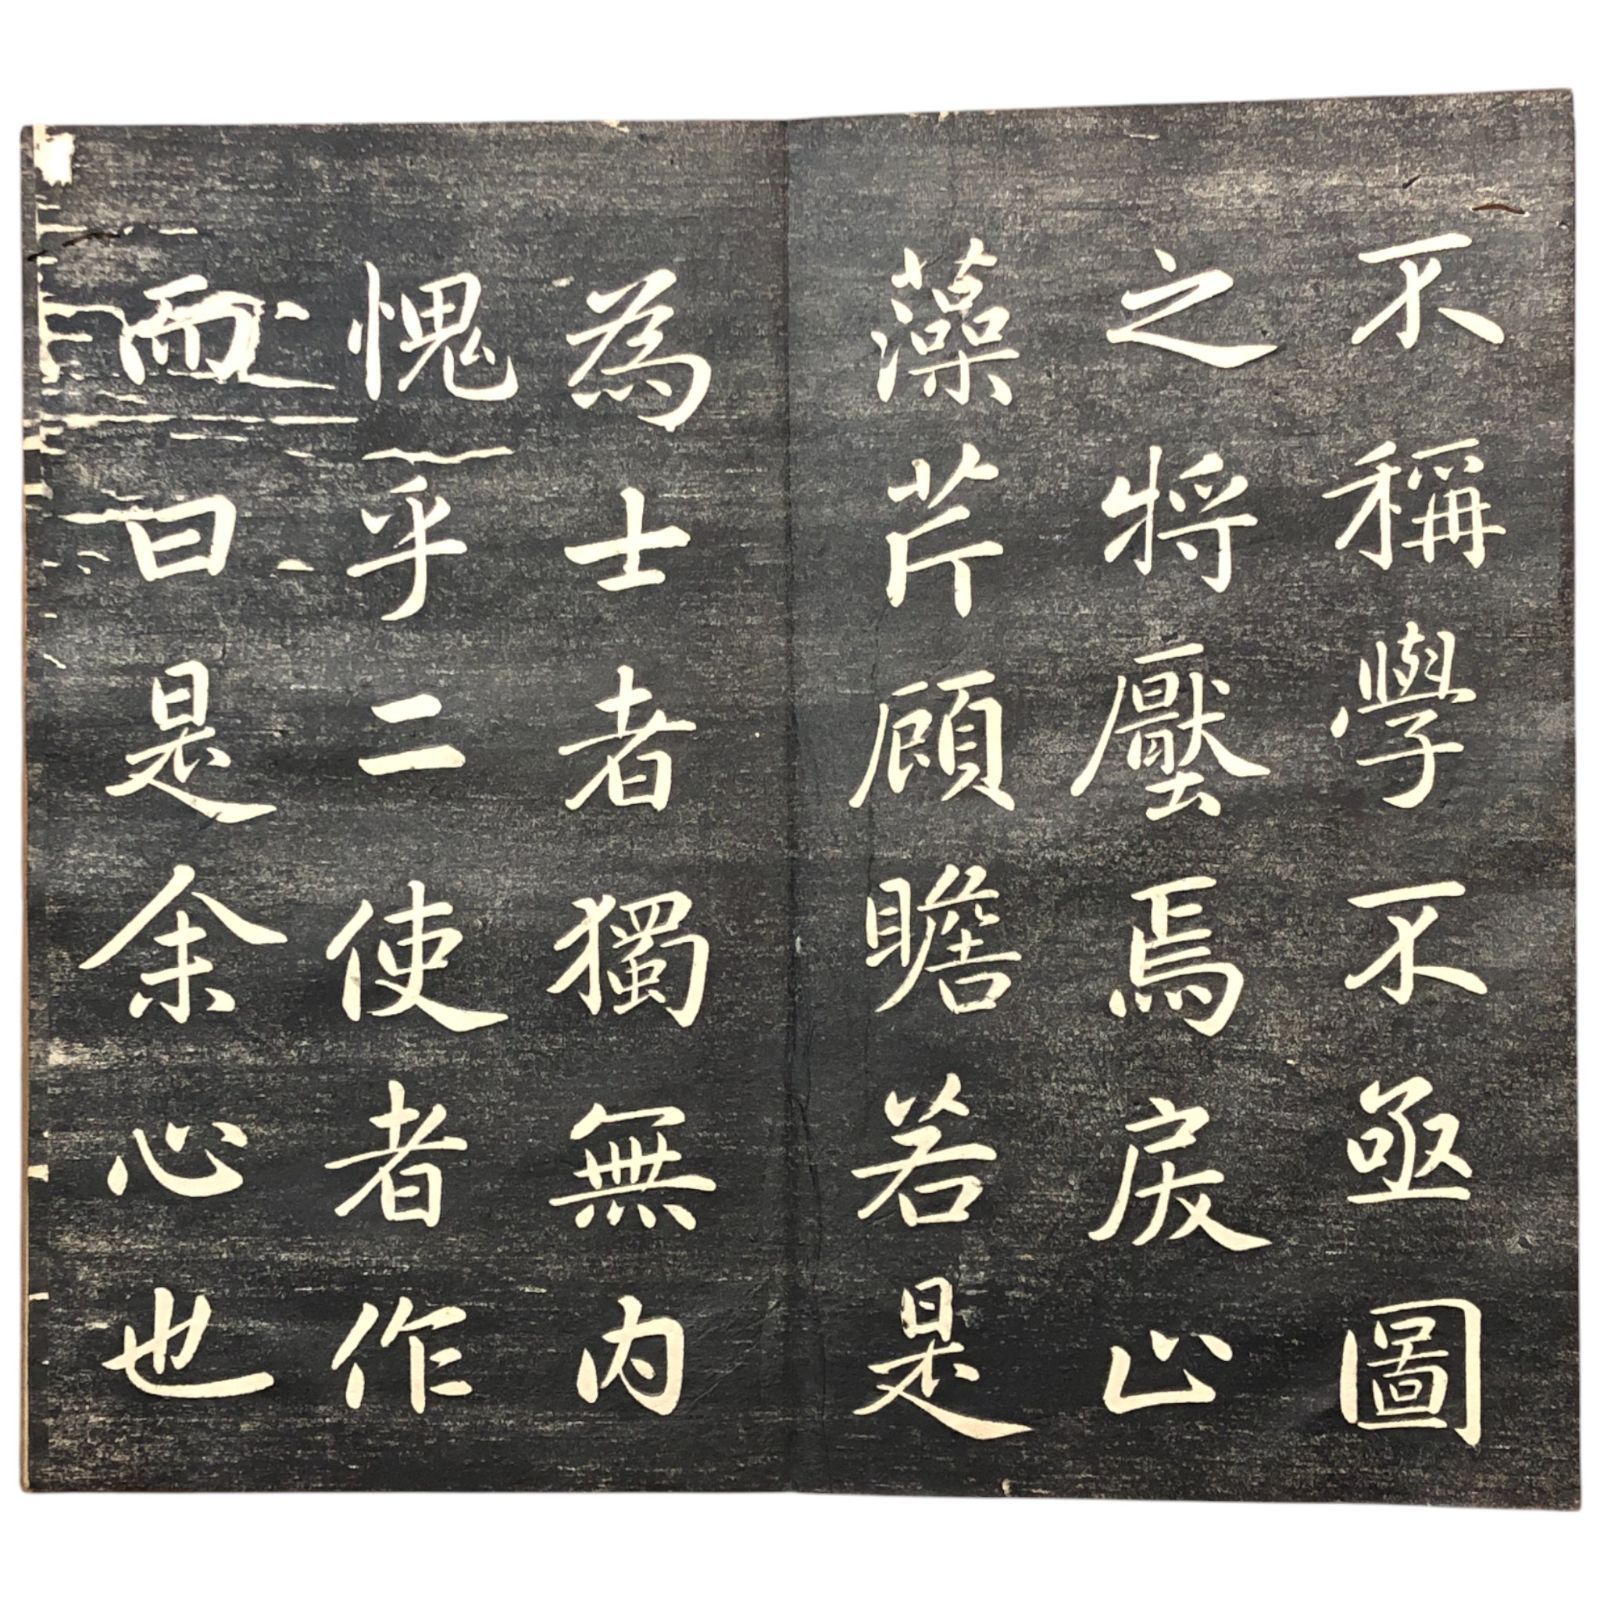 不稱學不亟圖
之將壓焉戾止
藻芹顧瞻若是
為士者獨無内
愧乎二使者作
而曰是余心也